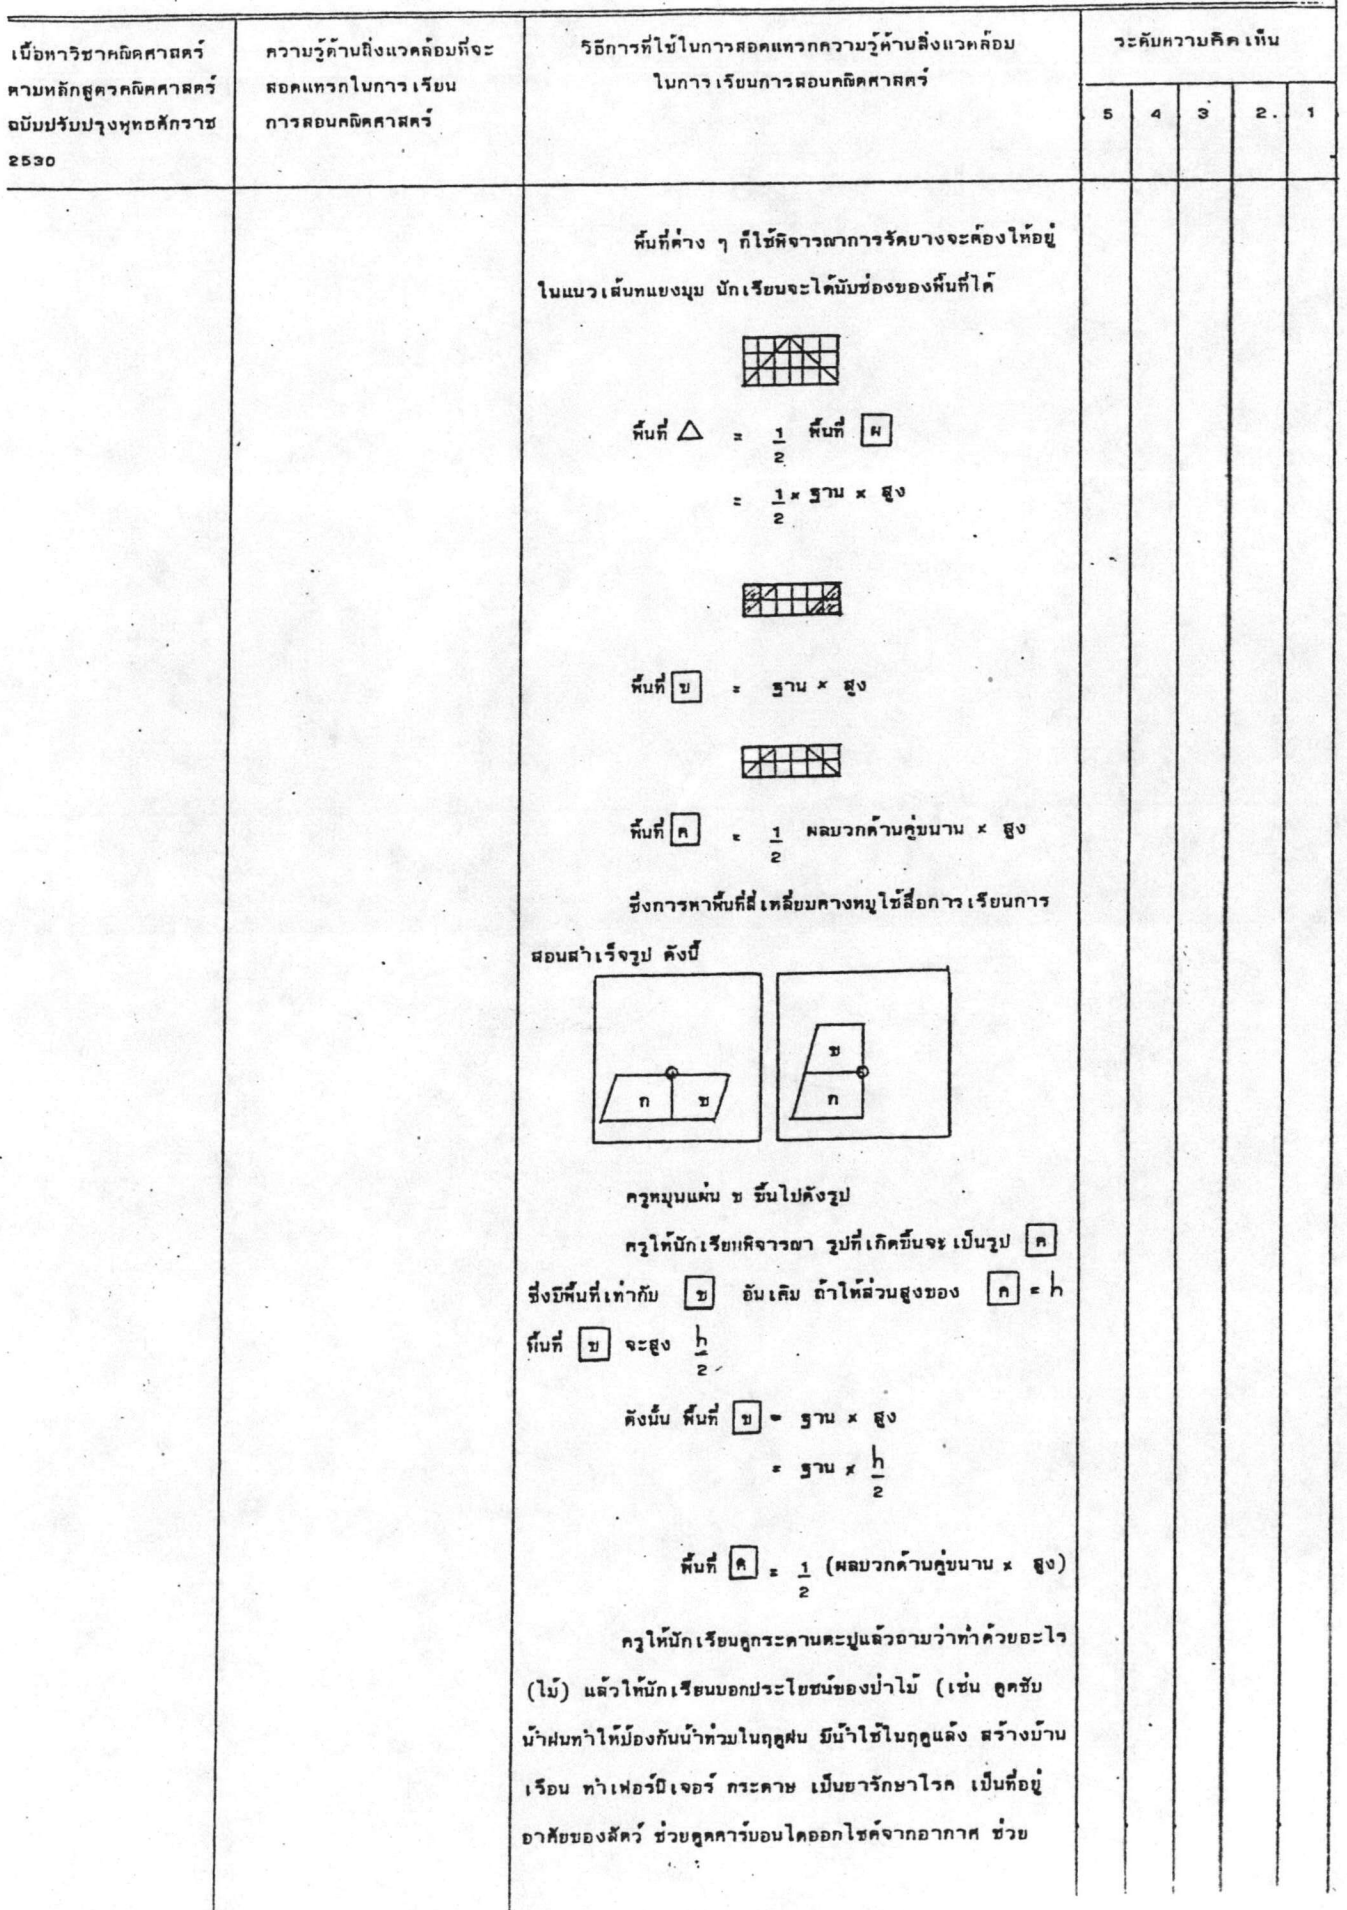 เนื้อหาวิชาคณิตศาสตร์
ตามหลักสูตรคณิตศาสตร์
ฉบับปรับปรุงพุทธศักราช
2530
ความรู้ด้านสิ่งแวดล้อมที่จะ
สอดแทรกในการเรียน
การสอนคณิตศาสตร์
วิธีการที่ใช้ในการสอดแทรกความรู้ด้านสิ่งแวดล้อม
ในการเรียนการสอนคณิตศาสตร์
ระดับความคิดเห็น
5 4 3 2. 1
พื้นที่ต่าง ๆ ก็ใช้พิจารณาการรัดยางจะต้องให้อยู่
ในแนวเส้นทแยงมุม นักเรียนจะได้นับช่องของพื้นที่ได้
พื้นที่ △ = 1/2 พื้นที่ ผ
= 1/2 × ฐาน × สูง
พื้นที่ ข = ฐาน × สูง
พื้นที่ ค = 1/2 ผลบวกด้านคู่ขนาน × สูง
ซึ่งการหาพื้นที่สี่เหลี่ยมคางหมูใช้สื่อการเรียนการ
สอนสำเร็จรูป ดังนี้
ก ข
ข
ก
ครูหมุนแผ่น ข ขึ้นไปดังรูป
ครูให้นักเรียนพิจารณา รูปที่เกิดขึ้นจะเป็นรูป ค
ซึ่งมีพื้นที่เท่ากับ ข อันเดิม ถ้าให้ส่วนสูงของ ค = h
พื้นที่ ข จะสูง h/2
ดังนั้น พื้นที่ ข = ฐาน × สูง
= ฐาน × h/2
พื้นที่ ค = 1/2 (ผลบวกด้านคู่ขนาน × สูง)
ครูให้นักเรียนดูกระดานตะปูแล้วถามว่าทำด้วยอะไร
(ไม้) แล้วให้นักเรียนบอกประโยชน์ของป่าไม้ (เช่น ดูดซับ
น้ำฝนทำให้ป้องกันน้ำท่วมในฤดูฝน มีน้ำใช้ในฤดูแล้ง สร้างบ้าน
เรือน ทำเฟอร์นิเจอร์ กระดาษ เป็นยารักษาโรค เป็นที่อยู่
อาศัยของสัตว์ ช่วยดูดคาร์บอนไดออกไซด์จากอากาศ ช่วย